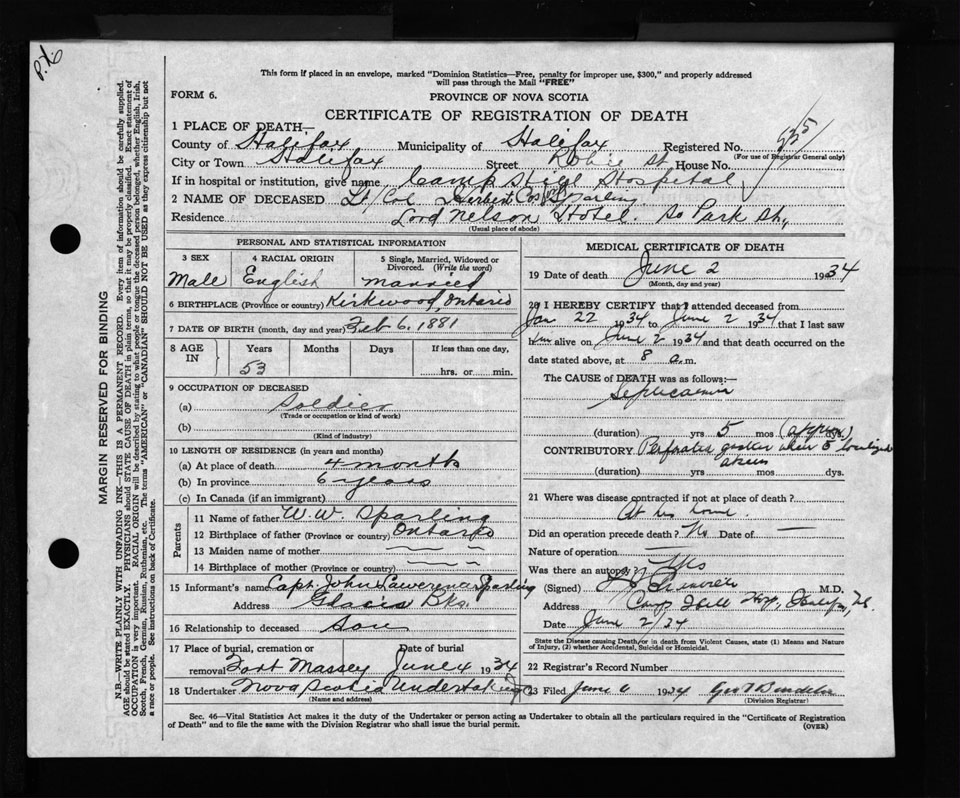 P.X.
This form if placed in an envelope, marked "Dominion Statistics—Free, penalty for improper use, $300," and properly addressed
will pass through the Mail "FREE"
FORM 6.
PROVINCE OF NOVA SCOTIA
CERTIFICATE OF REGISTRATION OF DEATH
1 PLACE OF DEATH—
County of Halifax Municipality of Halifax Registered No. 935
(For use of Registrar General only)
City or Town Halifax Street Robie St House No.
If in hospital or institution, give name Camp Hill Hospital
2 NAME OF DECEASED Lt/Col Herbert Cos Sparling
Residence Lord Nelson Hotel. So Park St,
(Usual place of abode)
PERSONAL AND STATISTICAL INFORMATION
3 SEX
Male
4 RACIAL ORIGIN
English
5 Single, Married, Widowed or
Divorced. (Write the word)
married
6 BIRTHPLACE (Province or country) Kirkwood, Ontario
7 DATE OF BIRTH (month, day and year) Feb 6, 1881
8 AGE
IN
Years
53
Months
Days
If less than one day,
hrs. or min.
9 OCCUPATION OF DECEASED
(a) Soldier
(Trade or occupation or kind of work)
(b)
(Kind of industry)
10 LENGTH OF RESIDENCE (in years and months)
(a) At place of death 4 months
(b) In province 6 years
(c) In Canada (if an immigrant)
Parents
11 Name of father W. W. Sparling
12 Birthplace of father (Province or country) Ontario
13 Maiden name of mother
14 Birthplace of mother (Province or country)
15 Informant's name Capt. John Lawerence Sparling
Address Glacis Bks.
16 Relationship to deceased Son
17 Place of burial, cremation or
removal Fort Massey
Date of burial
June 4 1934
18 Undertaker Nova Scotia Undertaking
(Name and address)
MEDICAL CERTIFICATE OF DEATH
19 Date of death June 2 1934
(Month, day and year)
20 I HEREBY CERTIFY that I attended deceased from
Jan 22 1934 to June 2 1934 that I last saw
him alive on June 2 1934 and that death occurred on the
date stated above, at 8 a.m.
The CAUSE of DEATH was as follows:—
Septicaemia
(duration) yrs 5 mos (approx) dys.
CONTRIBUTORY Perforated gastric ulcer
(duration) yrs mos dys.
21 Where was disease contracted if not at place of death?
At his home.
Did an operation precede death? No Date of —
Nature of operation —
Was there an autopsy? Yes
(Signed) M.D.
Address Camp Hill Hosp, Halifax, N.S.
Date June 2/34
State the Disease causing Death, or in death from Violent Causes, state (1) Means and Nature
of Injury, (2) whether Accidental, Suicidal or Homicidal.
22 Registrar's Record Number
23 Filed June 6 1934
(Division Registrar)
Sec. 46—Vital Statistics Act makes it the duty of the Undertaker or person acting as Undertaker to obtain all the particulars required in the "Certificate of Registration
of Death" and to file the same with the Division Registrar who shall issue the burial permit.
(OVER)
MARGIN RESERVED FOR BINDING
N.B.—WRITE PLAINLY WITH UNFADING INK—THIS IS A PERMANENT RECORD. Every item of information should be carefully supplied.
AGE should be stated EXACTLY. PHYSICIANS should STATE CAUSE OF DEATH in plain terms, so that it may be properly classified. Exact statement of
OCCUPATION is very important. RACIAL ORIGIN will be described by stating to what people or tongue the deceased person belonged, whether English, Irish,
Scotch, French, German, Russian, Ruthenian, etc. The terms "AMERICAN" or "CANADIAN" SHOULD NOT BE USED as they express citizenship but not
a race or people. See instructions on back of Certificate.